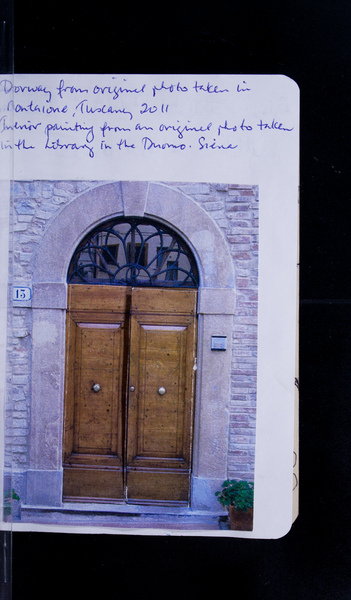 Dorway from original photo taken in
Montaione, Tuscany 2011
Interior painting from an original photo taken
in the Library in the Duomo. Siena
13